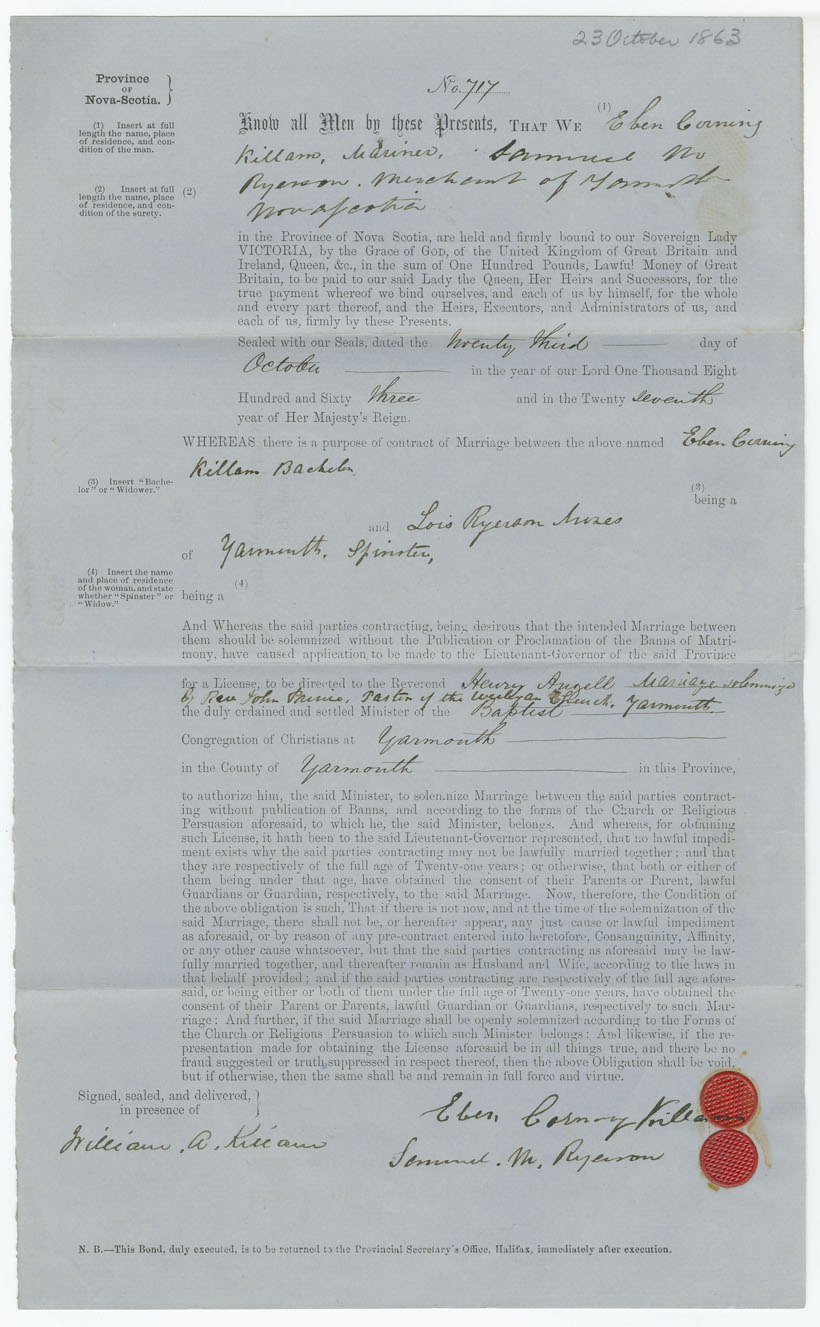 23 October 1863
Province
OF
Nova-Scotia.
No. 717
(1) Insert at full
length the name, place
of residence, and con-
dition of the man.
Know all Men by these Presents, THAT WE (1) Eben Corning
Killam, Mariner, Samuel M
(2) Insert at full
length the name, place
of residence, and con-
dition of the surety.
(2) Ryerson. Merchant of Yarmouth
Nova Scotia
in the Province of Nova Scotia, are held and firmly bound to our Sovereign Lady
VICTORIA, by the Grace of GOD, of the United Kingdom of Great Britain and
Ireland, Queen, &c., in the sum of One Hundred Pounds, Lawful Money of Great
Britain, to be paid to our said Lady the Queen, Her Heirs and Successors, for the
true payment whereof we bind ourselves, and each of us by himself, for the whole
and every part thereof, and the Heirs, Executors, and Administrators of us, and
each of us, firmly by these Presents.
Sealed with our Seals, dated the Twenty third day of
October in the year of our Lord One Thousand Eight
Hundred and Sixty three and in the Twenty seventh
year of Her Majesty's Reign.
WHEREAS there is a purpose of contract of Marriage between the above named Eben Corning
Killam Bachelor
(3) Insert "Bache-
lor" or "Widower."
(3)
being a
and Lois Ryerson Moses
of Yarmouth, Spinster,
(4) Insert the name
and place of residence
of the woman, and state
whether "Spinster" or
"Widow."
(4)
being a
And Whereas the said parties contracting, being desirous that the intended Marriage between
them should be solemnized without the Publication or Proclamation of the Banns of Matri-
mony, have caused application to be made to the Lieutenant-Governor of the said Province
for a License, to be directed to the Reverend Henry Angell Marriage solemnized
by Rev John Prince, Pastor of the Wesleyan Church, Yarmouth
the duly ordained and settled Minister of the Baptist
Congregation of Christians at Yarmouth
in the County of Yarmouth in this Province,
to authorize him, the said Minister, to solemnize Marriage between the said parties contract-
ing without publication of Banns, and according to the forms of the Church or Religious
Persuasion aforesaid, to which he, the said Minister, belongs. And whereas, for obtaining
such License, it hath been to the said Lieutenant-Governor represented, that no lawful impedi-
ment exists why the said parties contracting may not be lawfully married together; and that
they are respectively of the full age of Twenty-one years; or otherwise, that both or either of
them being under that age, have obtained the consent of their Parents or Parent, lawful
Guardians or Guardian, respectively, to the said Marriage. Now, therefore, the Condition of
the above obligation is such, That if there is not now, and at the time of the solemnization of the
said Marriage, there shall not be, or hereafter appear, any just cause or lawful impediment
as aforesaid, or by reason of any pre-contract entered into heretofore, Consanguinity, Affinity,
or any other cause whatsoever, but that the said parties contracting as aforesaid may be law-
fully married together, and thereafter remain as Husband and Wife, according to the laws in
that behalf provided; and if the said parties contracting are respectively of the full age afore-
said, or being either or both of them under the full age of Twenty-one years, have obtained the
consent of their Parent or Parents, lawful Guardian or Guardians, respectively to such Mar-
riage: And further, if the said Marriage shall be openly solemnized according to the Forms of
the Church or Religious Persuasion to which such Minister belongs: And likewise, if the re-
presentation made for obtaining the License aforesaid be in all things true, and there be no
fraud suggested or truth suppressed in respect thereof, then the above Obligation shall be void,
but if otherwise, then the same shall be and remain in full force and virtue.
Signed, sealed, and delivered,
in presence of
Eben Corning Killam
William. A. Killam
Samuel. M. Ryerson
N. B.—This Bond, duly executed, is to be returned to the Provincial Secretary's Office, Halifax, immediately after execution.